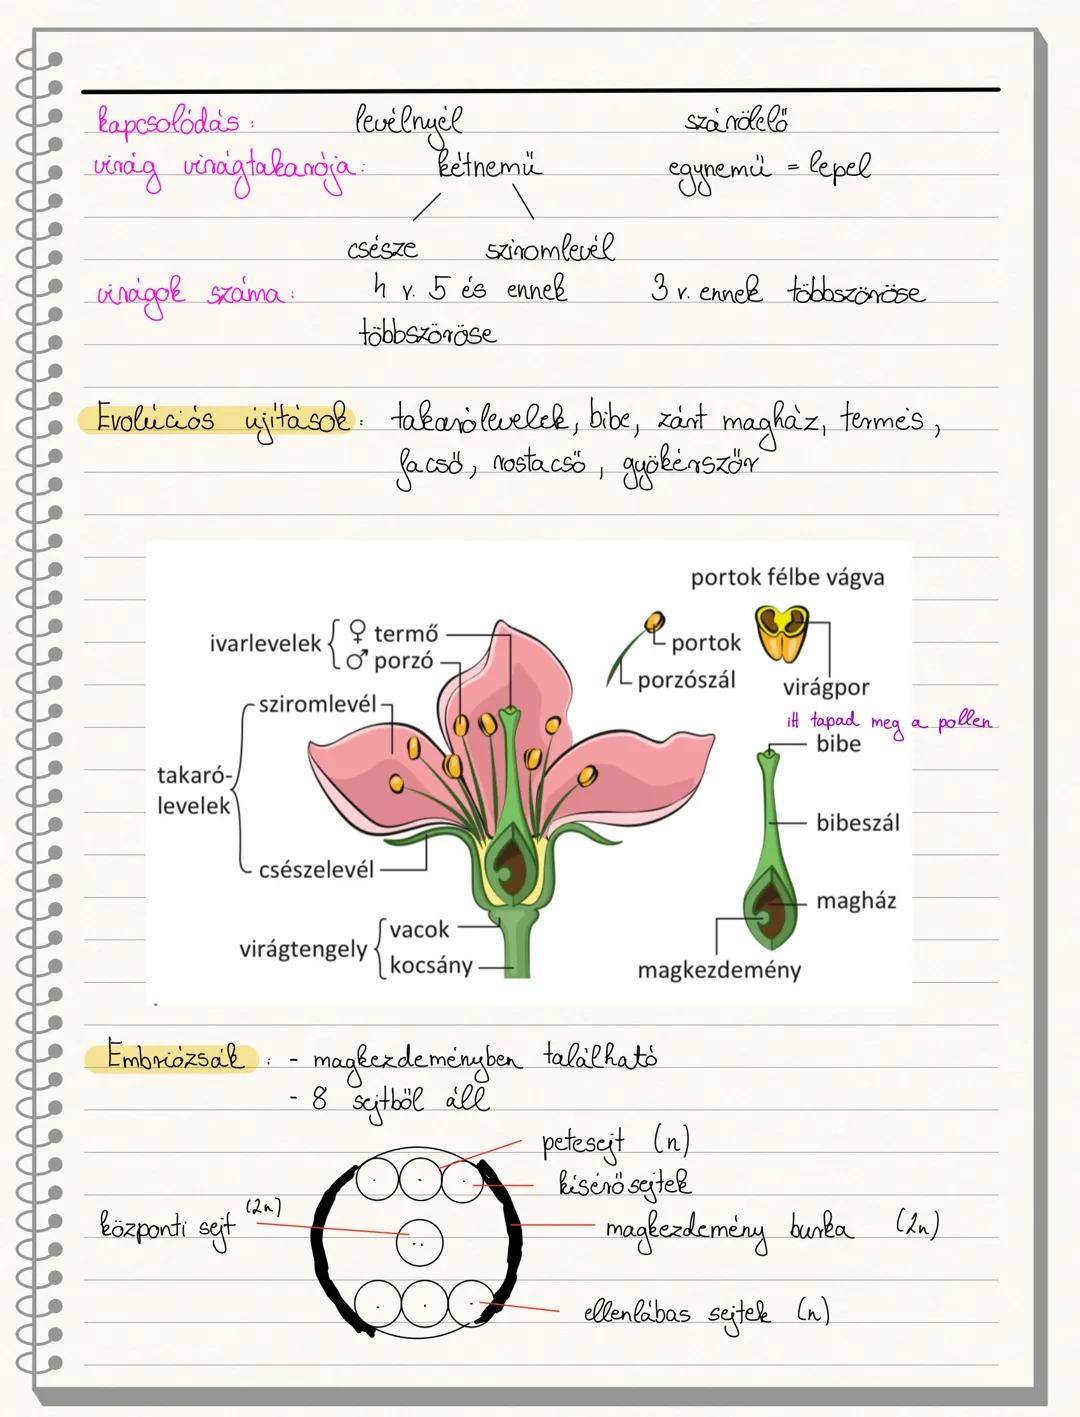 kapcsolódás: levélnyél szárölelő
virág virágtakarója: kétnemű egynemű = lepel
csésze sziromlevél
virágok száma: 4 v. 5 és ennek 3 v. ennek többszöröse
többszöröse
Evolúciós újítások: takarólevelek, bibe, zárt magház, termés,
facső, rostacső, gyökérszőr
portok félbe vágva
ivarlevelek ♀ termő
♂ porzó
portok
porzószál
virágpor
sziromlevél
itt tapad meg a pollen
bibe
takaró-
levelek
bibeszál
csészelevél
magház
virágtengely vacok
kocsány
magkezdemény
Embriózsák: - magkezdeményben található
- 8 sejtből áll
petesejt (n)
kísérősejtek
központi sejt (2n)
magkezdemény burka (2n)
ellenlábas sejtek (n)